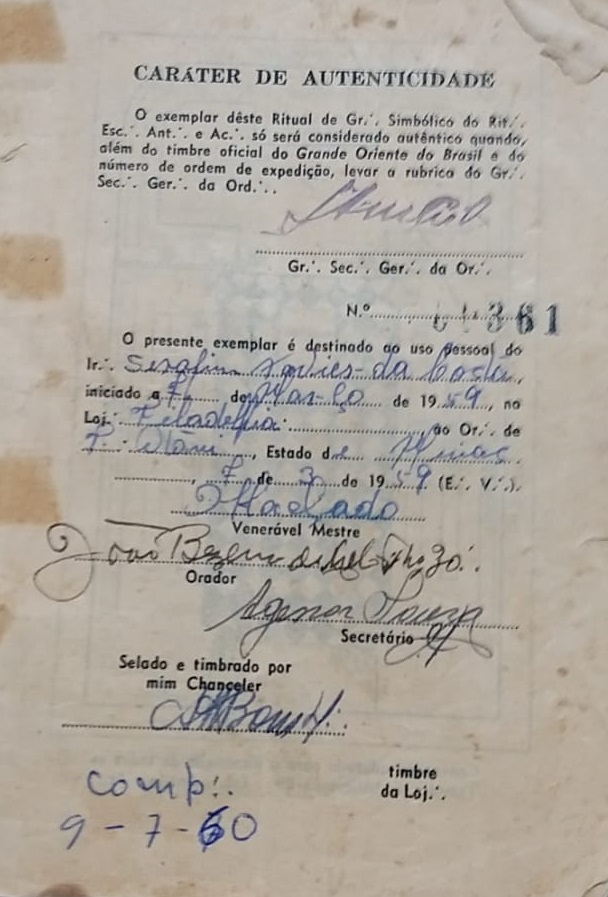 CARÁTER DE AUTENTICIDADE
O exemplar dêste Ritual de Gr.˙. Simbólico do Rit.˙.
Esc.˙. Ant.˙. e Ac.˙. só será considerado autêntico quando,
além do timbre oficial do Grande Oriente do Brasil e do
número de ordem de expedição, levar a rubrica do Gr.˙.
Sec.˙. Ger.˙. da Ord.˙..
Gr.˙. Sec.˙. Ger.˙. da Or.˙.
N.º 361
O presente exemplar é destinado ao uso pessoal do
Ir.˙. Serafim da Costa,
iniciado a 7 de Março de 1959, no
Loj.˙. Filadélfia ao Or.˙. de
T. Otôni, Estado de Minas
7 de 3 de 1959 (E.˙. V.˙.).
Machado
Venerável Mestre
João Bezerra
Orador
Agenor Souza
Secretário
Selado e timbrado por
mim Chanceler
timbre
da Loj.˙.
comp.˙.
9-7-60